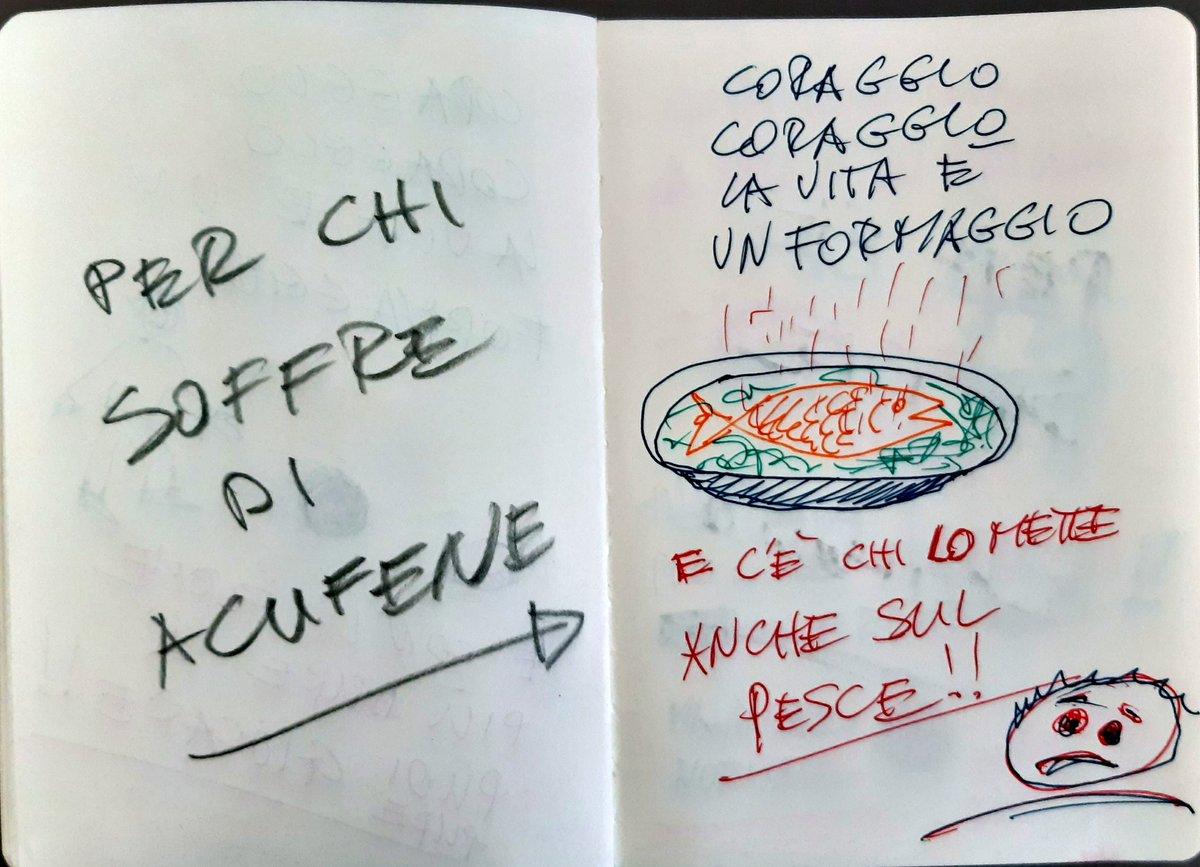 PER CHI
SOFFRE
DI
ACUFENE
CORAGGIO
CORAGGIO
LA VITA E
UN FORMAGGIO
E C'È CHI LO METTE
ANCHE SUL
PESCE!!